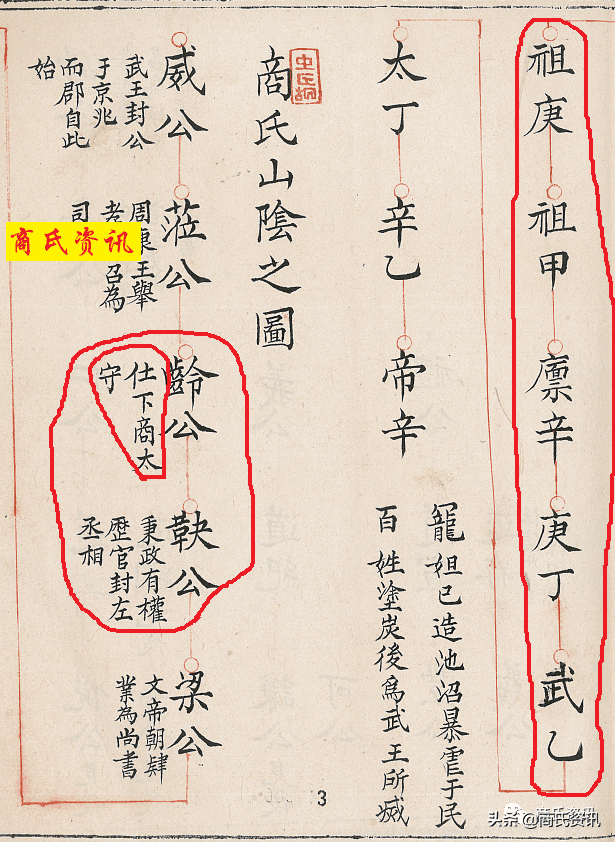 祖庚
祖甲
廩辛
庚丁
武乙
太丁
辛乙
帝辛
寵妲己造池沼暴虐于民
百姓塗炭後爲武王所滅
商氏山陰之圖
威公
武王封公
于京兆
而郡自此
始
蒞公
周康王舉
老召為
司
齡公
仕下商太
守
鞅公
秉政有權
歷官封左
丞相
梁公
文帝朝肄
業為尚書
商氏资讯
3
商氏资讯
头条@商氏资讯